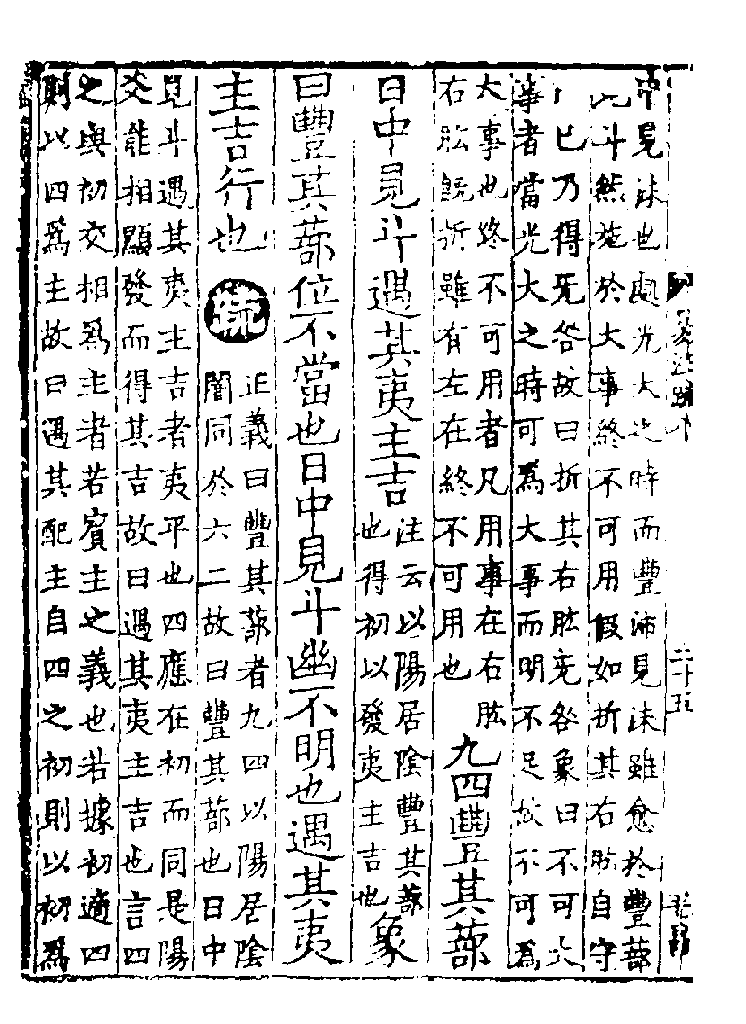 中見沬也處光大之時而豐沛見沬雖愈於豐蔀
見斗然施於大事終不可用假如折其右肱自守
而已乃得无咎故曰折其右肱无咎象曰不可大
事者當光大之時可為大事而明不足故不可為
大事也終不可用者凡用事在右肱
右肱既折雖有左在終不可用也
九四豐其蔀
日中見斗遇其夷主吉
注云以陽居陰豐其蔀
也得初以發夷主吉也
象
曰豐其蔀位不當也日中見斗幽不明也遇其夷
主吉行也
疏
正義曰豐其蔀者九四以陽居陰
闇同於六二故曰豐其蔀也日中
見斗遇其夷主吉者夷平也四應在初而同是陽
爻能相顯發而得其吉故曰遇其夷主吉也言四
之與初交相為主者若賓主之義也若據初適四
則以四為主故曰遇其配主自四之初則以初為
二十五